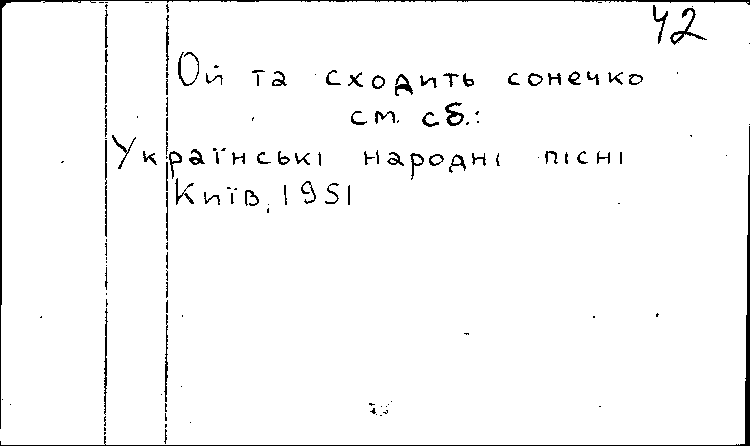 42
Ой та сходить сонечко
см. сб.:
Українські народні пісні
Київ, 1951